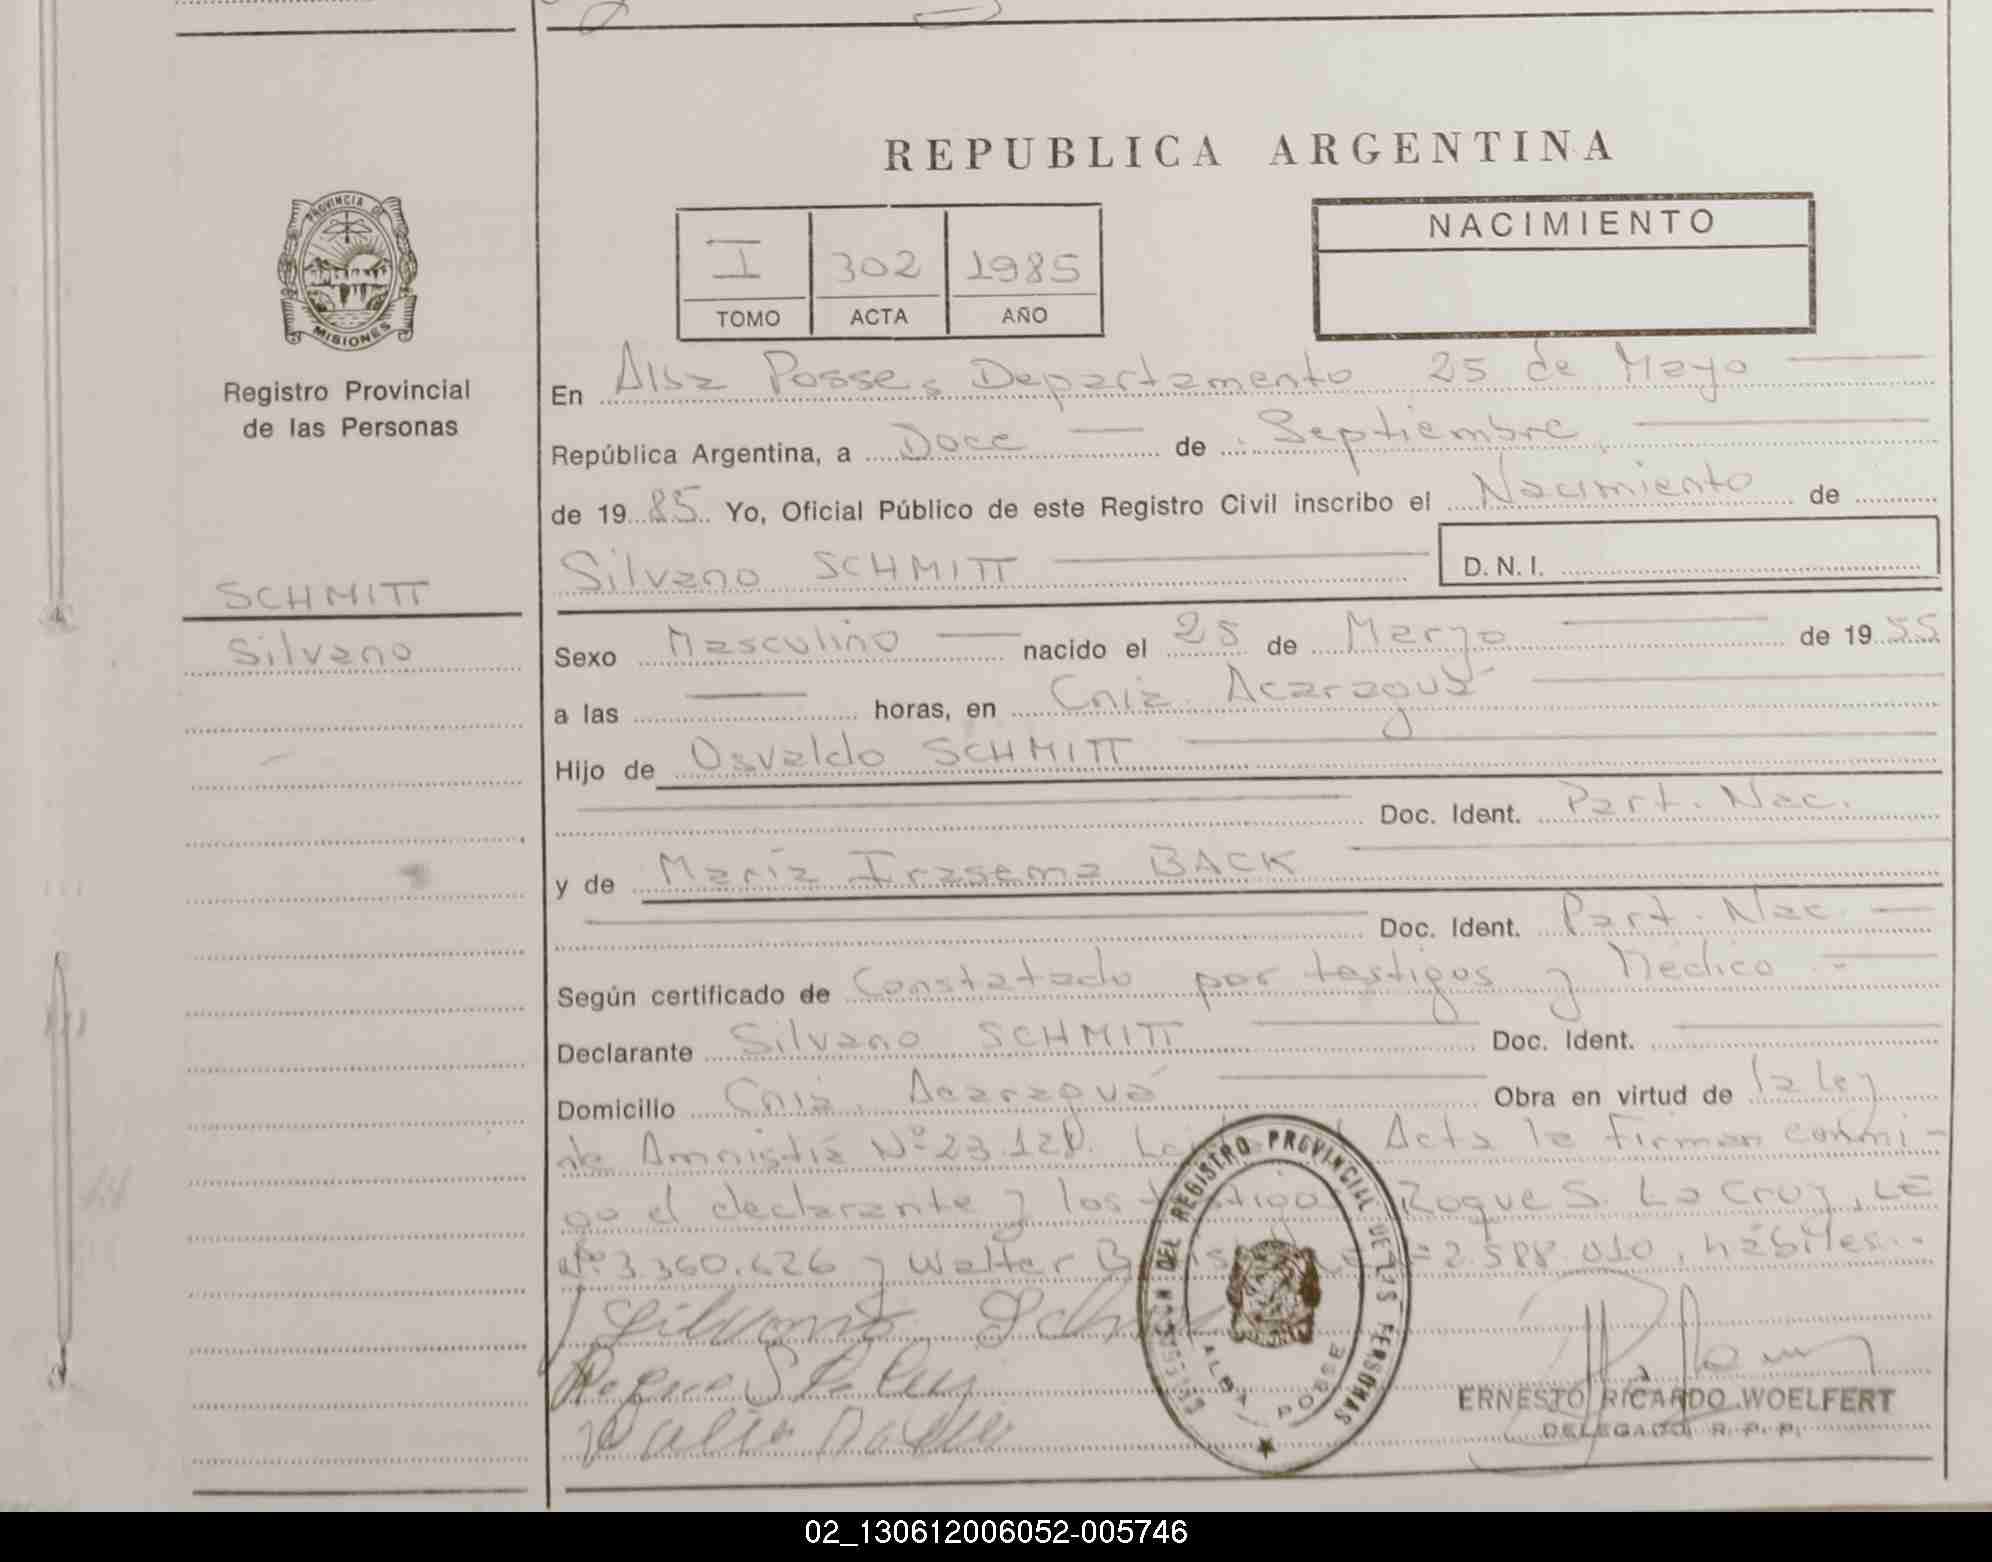 REPUBLICA ARGENTINA
PROVINCIA DE
MISIONES
Registro Provincial
de las Personas
I 302 1985
TOMO ACTA AÑO
NACIMIENTO
En Alba Posse, Departamento 25 de Mayo
República Argentina, a Doce de Septiembre
de 1985. Yo, Oficial Público de este Registro Civil inscribo el Nacimiento de
Silvano SCHMITT D.N.I.
SCHMITT
Silvano
Sexo Masculino nacido el 25 de Marzo de 1955
a las horas, en Cnia. Acaraguá
Hijo de Osvaldo SCHMITT
Doc. Ident. Part. Nac.
y de María Irasema BACK
Doc. Ident. Part. Nac.
Según certificado de Constatado por testigos y Médico
Declarante Silvano SCHMITT Doc. Ident.
Domicilio Cnia. Acaraguá Obra en virtud de la ley
de Amnistía Nº 23.128. Acta la firman conmi-
go el declarante y los testigos Roque S. La Cruz, LE
Nº 3.360.626 y Walter 2.588.010, hábiles.
Silvano
REGISTRO PROVINCIAL DE LAS PERSONAS
ALBA POSSE
ERNESTO RICARDO WOELFERT
DELEGADO R. P. P.
02_130612006052-005746